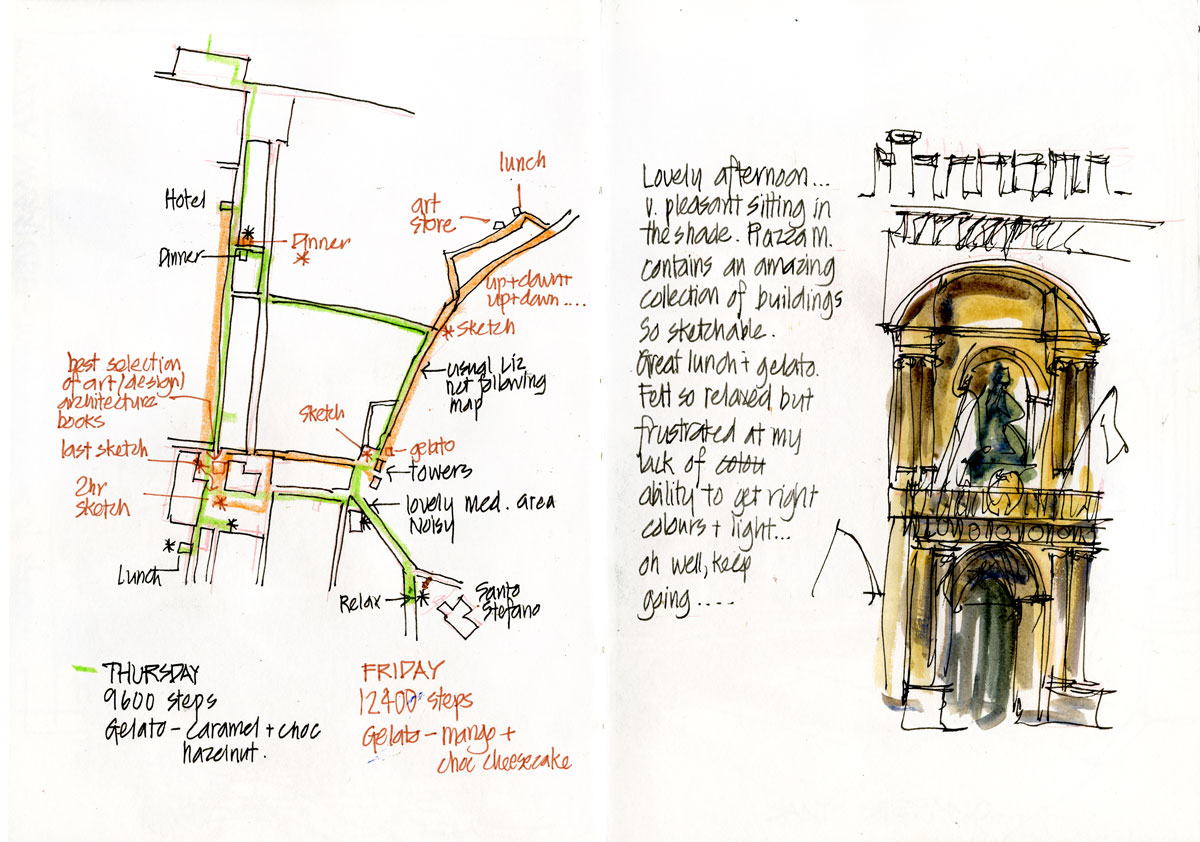 lunch
art
store
Hotel
Dinner
Dinner
up+down+
up+down....
sketch
best selection
of art/design/
architecture
books
usual Liz
not following
map
sketch
last sketch
gelato
towers
2hr
sketch
lovely med. area
Noisy
Lunch
Relax
Santo
Stefano
THURSDAY
9600 steps
Gelato - caramel + choc
hazelnut.
FRIDAY
12400 steps
Gelato - mango +
choc cheesecake
Lovely afternoon...
v. pleasant sitting in
the shade. Piazza M.
contains an amazing
collection of buildings
So sketchable.
Great lunch + gelato.
Felt so relaxed but
frustrated at my
lack of colou
ability to get right
colours + light...
oh well, keep
going.....